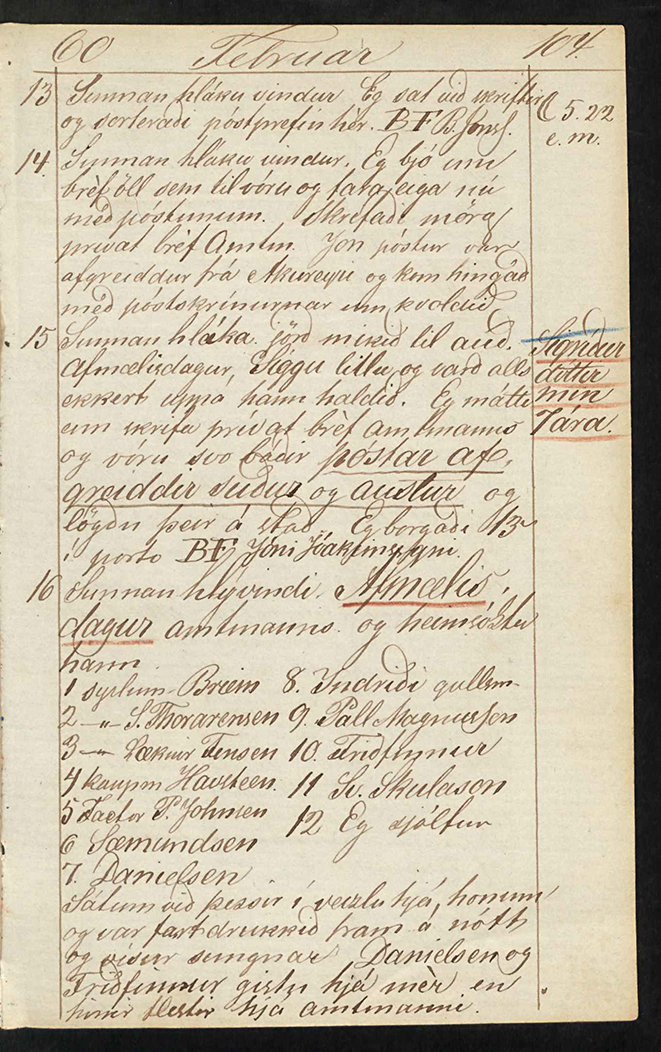 60 Februar 104.
13 Sunnan hláku vindur. Eg sat við skriftir
og sorteraði póstbréfin hér. BF B. Jónss.
☾ 5. 22
e. m.
14. Sunnan hláku vindur. Eg bjó um
bréf öll sem til vóru og fara eiga nú
með póstunum. Skrifaði mörg
privat bréf Amtm. Jon póstur var
afgreiddur frá Akureyri og kom hingað
með póstskrínurnar um kvöldið
15 Sunnan hláka. jörð mikið til auð.
Afmælisdagur, Siggu litlu, og varð alls
ekkert uppá hann haldið. Eg mátti
um skrifa prívat bréf amtmanns
og vóru svo báðir póstar af,
greiddir suður og austur og
lögðu þeir á stað. Eg borgaði 13
í porto BF Jóni Jóakimssyni.
Sigríður
dóttir
mín
7 ára.
16 Sunnan hlývindi. Afmælis,
dagur amtmanns. og heimsóktu
hann.
1 syslum Briem
2 -"- S. Thorarensen
3 -"- Læknir Finsen
4 kaupm Havsteen.
5 Factor P. Johnsen
6 Sæmundsen
7. Danielsen
8. Indriði gullsm
9. Páll Magnusson
10. Friðfinnur
11 Sv. Skulason
12 Eg sjálfur
Sátum við þessir í veizlu hjá, honum
og var fast drukkið fram á nótt
og vísur sungnar. Danielsen og
Friðfinnur gistu hjá mèr en
hinir flestir hjá amtmanni.